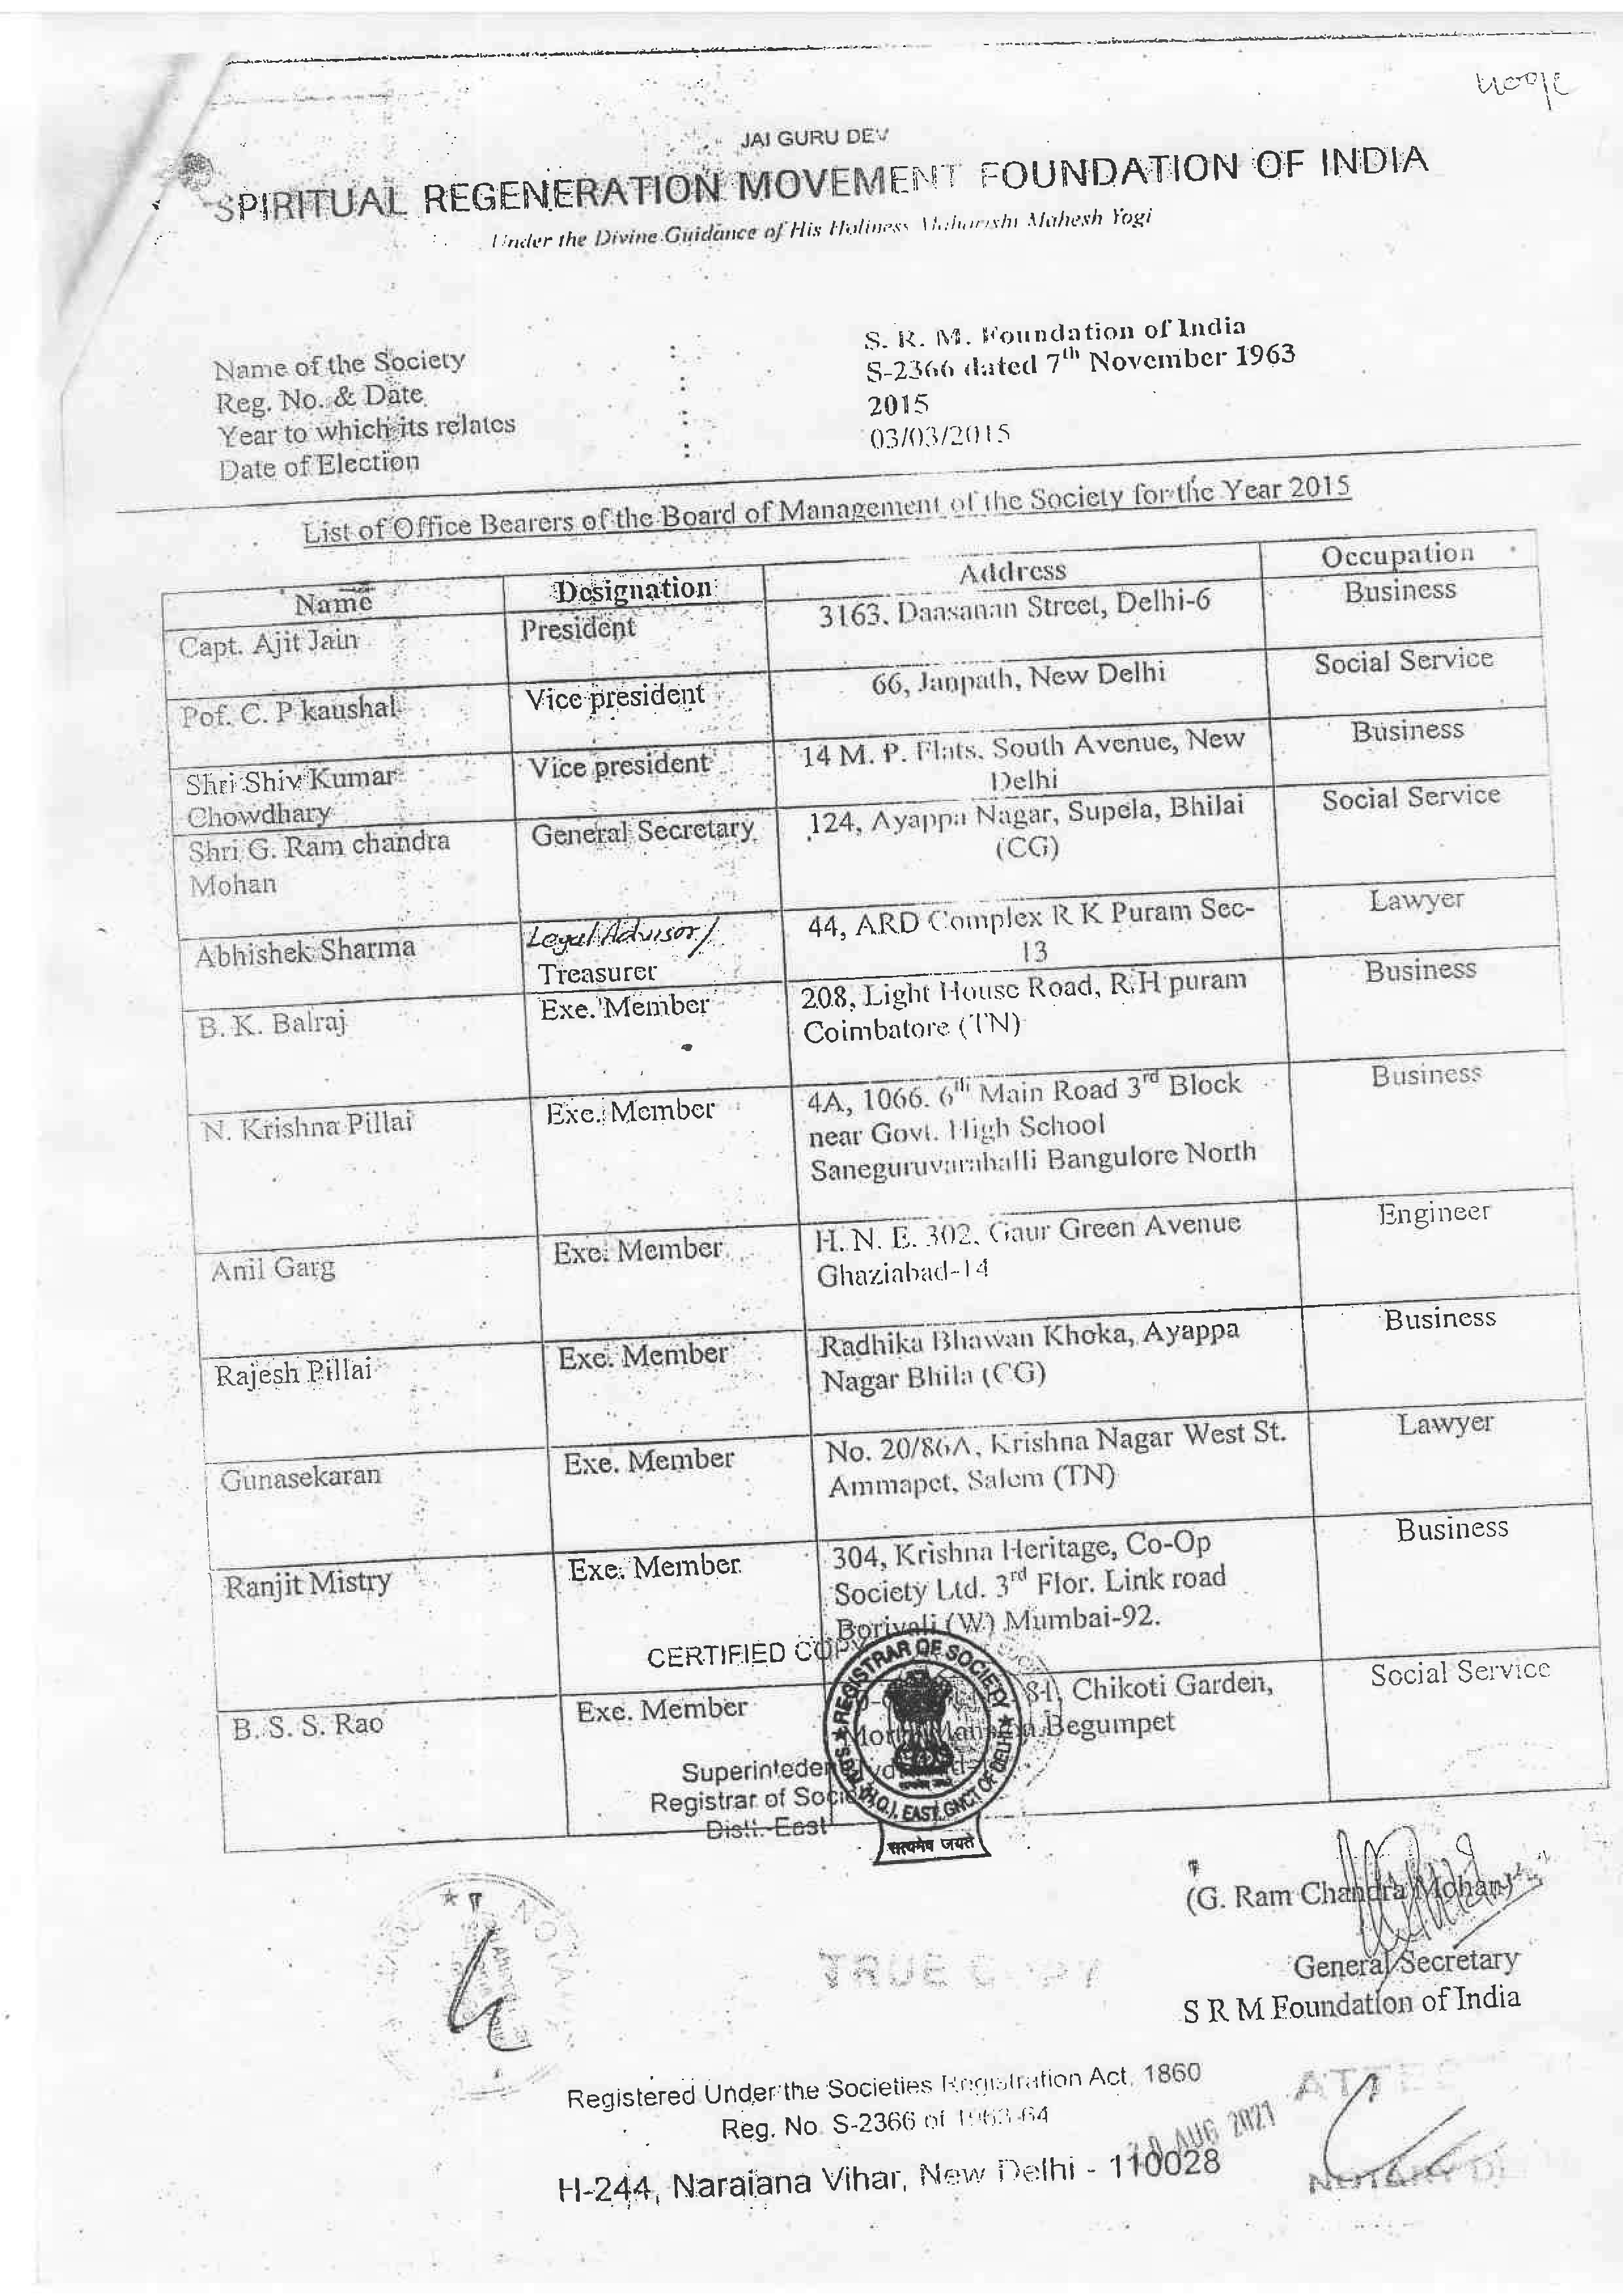 JAI GURU DEV
SPIRITUAL REGENERATION MOVEMENT FOUNDATION OF INDIA
Under the Divine Guidance of His Holiness Maharishi Mahesh Yogi
Name of the Society : S. R. M. Foundation of India
Reg. No. & Date : S-2366 dated 7th November 1963
Year to which its relates : 2015
Date of Election : 03/03/2015
List of Office Bearers of the Board of Management of the Society for the Year 2015
Name Designation Address Occupation
Capt. Ajit Jain President 3163, Daasanan Street, Delhi-6 Business
Pof. C. P kaushal Vice president 66, Janpath, New Delhi Social Service
Shri Shiv Kumar Vice president 14 M. P. Flats, South Avenue, New Business
Chowdhary Delhi
Shri G. Ram chandra General Secretary 124, Ayappa Nagar, Supela, Bhilai Social Service
Mohan (CG)
Abhishek Sharma Legal Advisor/ 44, ARD Complex R K Puram Sec- Lawyer
Treasurer 13
B. K. Balraj Exe. Member 208, Light House Road, R.H puram Business
Coimbatore (TN)
N. Krishna Pillai Exe. Member 4A, 1066. 6th Main Road 3rd Block Business
near Govt. High School
Saneguruvarahalli Bangulore North
Anil Garg Exe. Member H. N. E. 302, Gaur Green Avenue Engineer
Ghaziabad-14
Rajesh Pillai Exe. Member Radhika Bhawan Khoka, Ayappa Business
Nagar Bhila (CG)
Gunasekaran Exe. Member No. 20/86A, Krishna Nagar West St. Lawyer
Ammapet, Salem (TN)
Ranjit Mistry Exe. Member 304, Krishna Heritage, Co-Op Business
Society Ltd. 3rd Flor. Link road
Borivali (W) Mumbai-92.
CERTIFIED COPY
REGISTRAR OF SOCIETY
B. S. S. Rao Exe. Member Chikoti Garden, Social Service
Begumpet
Superintendent
Registrar of Society
Distt.-East
EAST, GNCT OF DELHI
सत्यमेव जयते
(G. Ram Chandra Mohan)
TRUE COPY
General Secretary
S R M Foundation of India
Registered Under the Societies Registration Act, 1860
Reg. No. S-2366 of 1963-64
AUG 2021
H-244, Naraiana Vihar, New Delhi - 110028